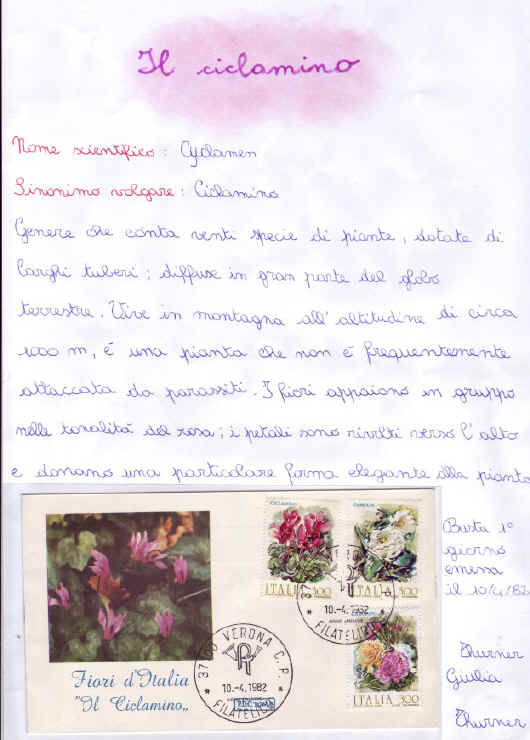 Il ciclamino
Nome scientifico: Cyclamen
Sinonimo volgare: Ciclamino
Genere che conta venti specie di piante, dotate di
larghi tuberi; diffuse in gran parte del globo
terrestre. Vive in montagna all'altitudine di circa
1000 m, è una pianta che non è frequentemente
attaccata da parassiti. I fiori appaiono in gruppo
nelle tonalità del rosa; i petali sono rivolti verso l'alto
e donano una particolare forma elegante alla pianta
CICLAMINO
CAMELIA
ITALIA 300
ITALIA 300
10.-4.1982
FILATELICO
ITALIA 300
37100 VERONA C.P.
10.-4.1982
FILATELICO
Fiori d'Italia
"Il Ciclamino„
Busta 1°
giorno
emessa
il 10/4/82
Thurner
Giulia
Thurner